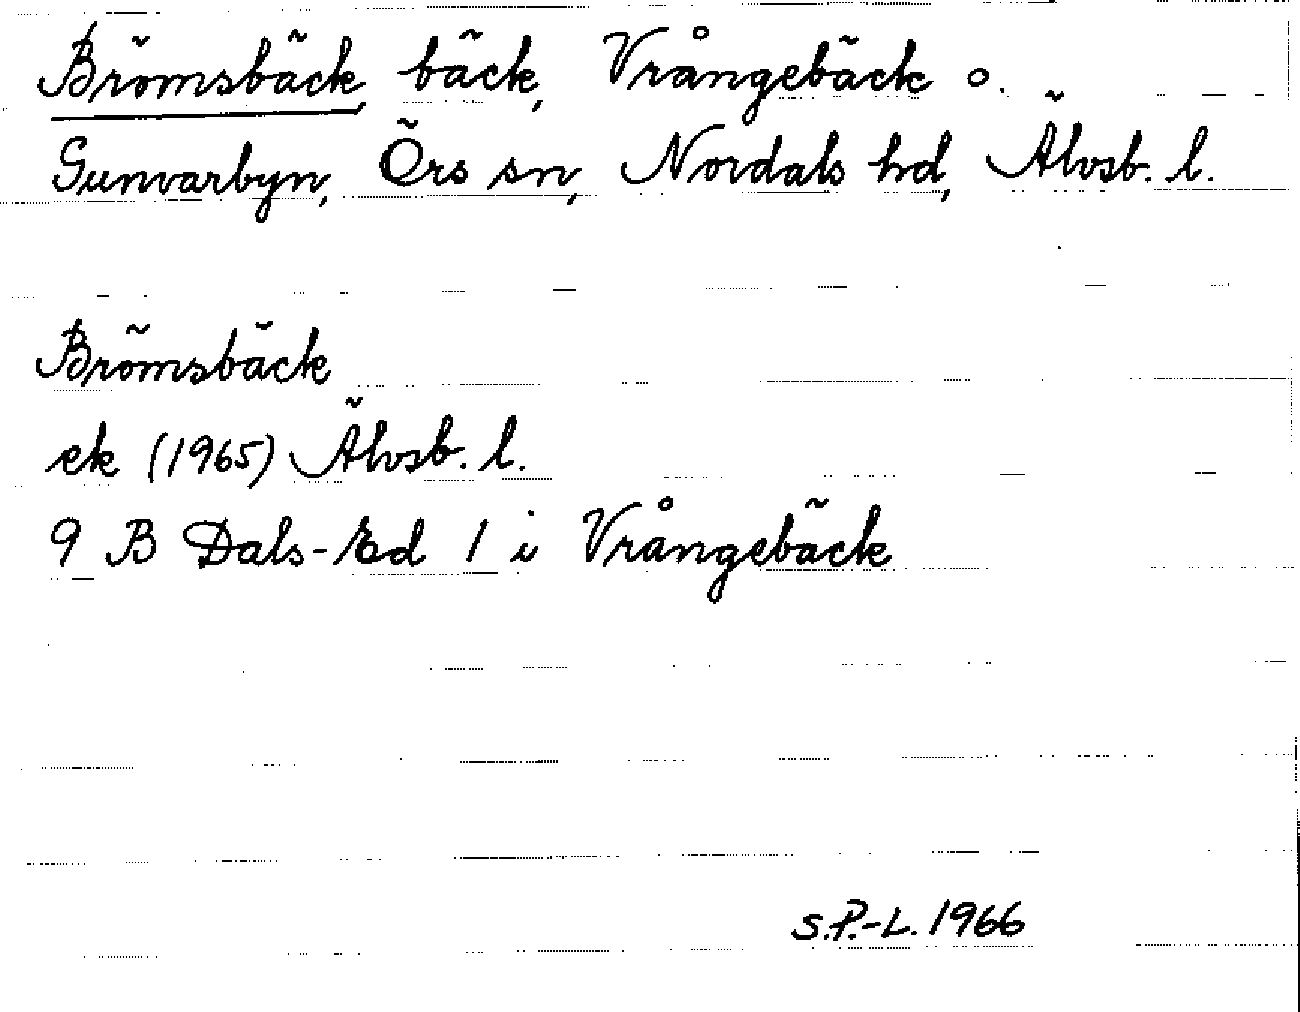 Brömsbäck, bäck, Vrångebäck o.
Gunvarbyn, Örs sn, Nordals hd, Älvsb. l.
Brömsbäck
ek (1965) Älvsb. l.
9 B Dals-Ed 1 i Vrångebäck
S.P.-L. 1966